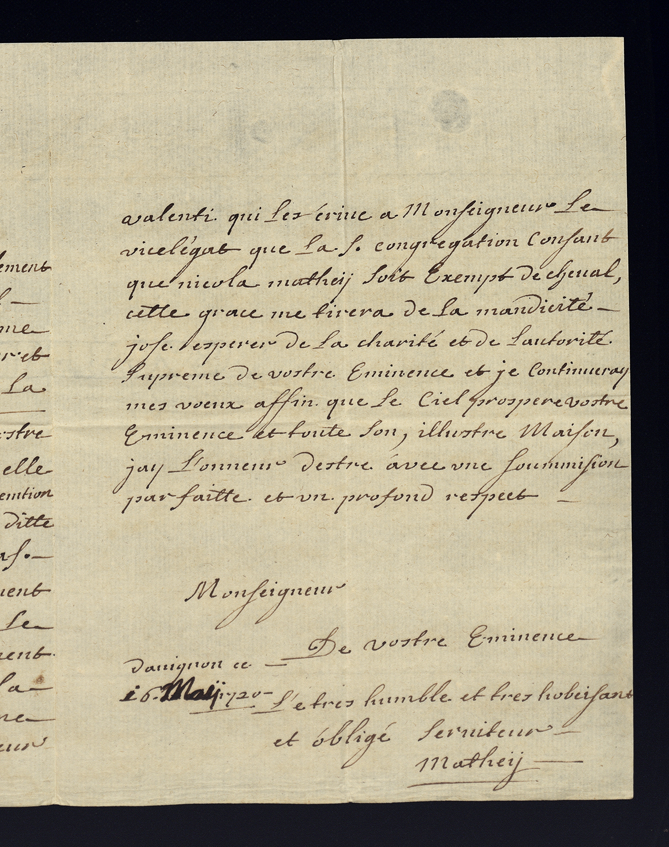 valenti. qui les'ériue a Monseigneur Le
vicelégat que La S. congregation Consant
que nicola matheij soit Exempt de cheual,
cette grace me tirera de La mandicité
jose esperer de La charité et de Lautorité
Supreme de vostre Eminence et je Continueray
mes voeux affin que Le Ciel prospere vostre
Eminence et toute Son, illustre Maison,
jay L'onneur destre avec vne soummision
parfaitte et vn profond respect
Monseigneur
De vostre Eminence
Dauignon ce
16 Maij 1720
Le tres humble et tres hobeissant
et obligé Seruiteur
Matheij
lement
me
r et
La
ostre
elle
emtion
ditte
as.
uent
Le
ent
la
ne
eur